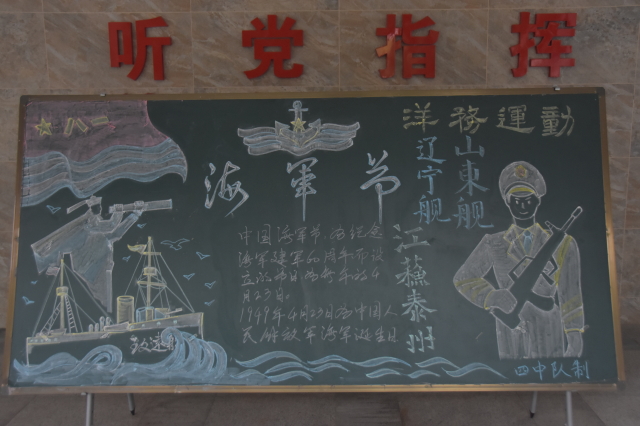 听党指挥
八一
洋務運動
海軍节
辽宁舰
山東舰
江蘇泰州
中国海军节,为纪念
海军建军60周年而设
立的节日,为每年的4
月23日。
1949年4月23日为中国人
民解放军海军诞生日
四中队制